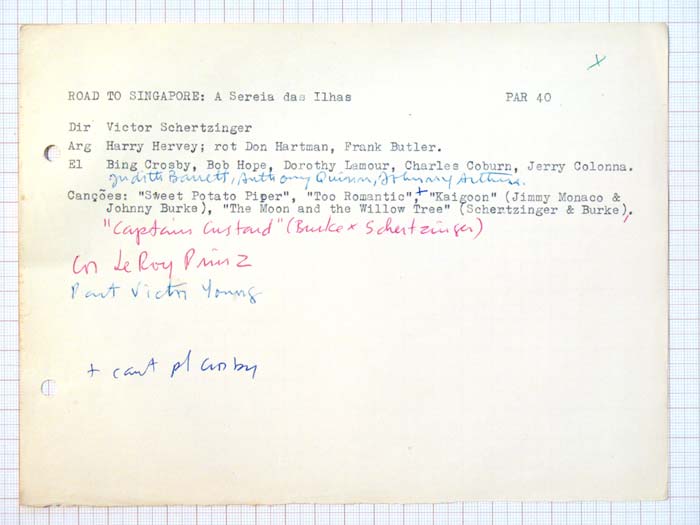 x
ROAD TO SINGAPORE: A Sereia das Ilhas PAR 40
Dir Victor Schertzinger
Arg Harry Hervey; rot Don Hartman, Frank Butler.
El Bing Crosby, Bob Hope, Dorothy Lamour, Charles Coburn, Jerry Colonna.
Judith Barrett, Anthony Quinn, Johnny Arthur.
Canções: "Sweet Potato Piper", "Too Romantic",+ "Kaigoon" (Jimmy Monaco &
Johnny Burke), "The Moon and the Willow Tree" (Schertzinger & Burke),
"Captain Custard" (Burke x Schertzinger)
Cor LeRoy Prinz
Part Victor Young
+ cant p/ Crosby